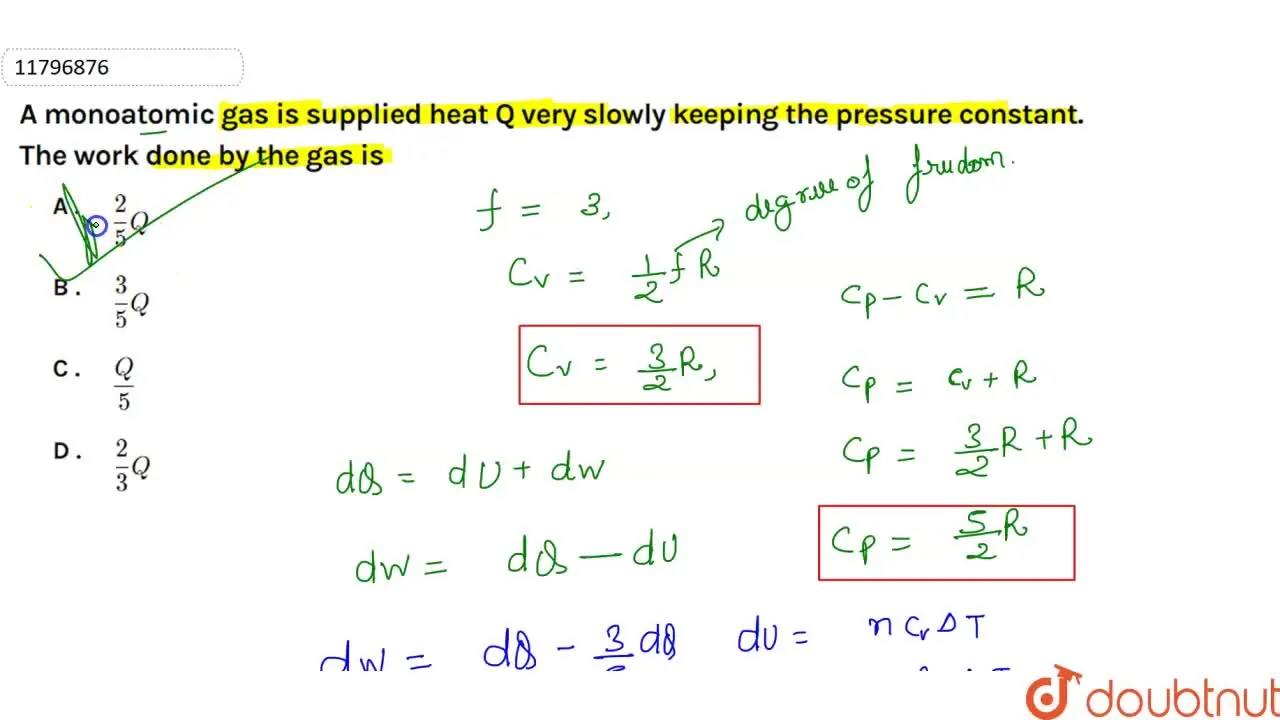 11796876
A monoatomic gas is supplied heat Q very slowly keeping the pressure constant.
The work done by the gas is
A. 2/5 Q
B. 3/5 Q
C. Q/5
D. 2/3 Q
f = 3,
degree of frudom.
Cv = 1/2 f R
Cv = 3/2 R,
Cp - Cv = R
Cp = Cv + R
Cp = 3/2 R + R
Cp = 5/2 R
dQ = dU + dW
dW = dQ — dU
dW = dQ - 3/ dQ
dU = n Cv ΔT
doubtnut